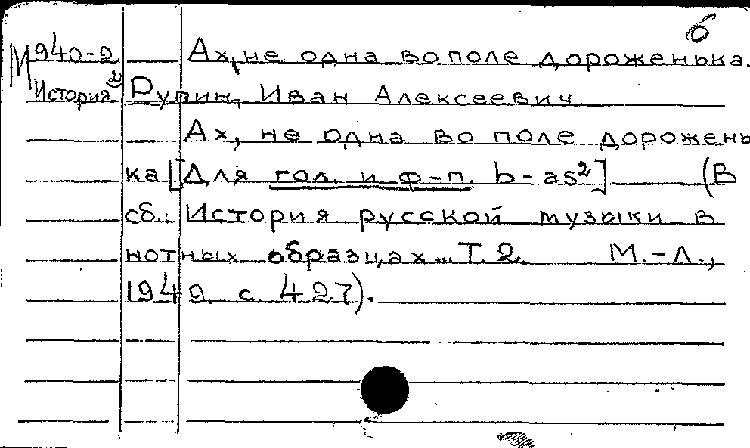 б
М940-2 Ах, не одна во поле дороженька.
История Рупин, Иван Алексеевич
Ах, не одна во поле дорожень
ка [Для гол. и ф-п. b-as²] (В
сб.: История русской музыки в
нотных образцах. Т. 2. М.-Л.,
1949. с. 427).